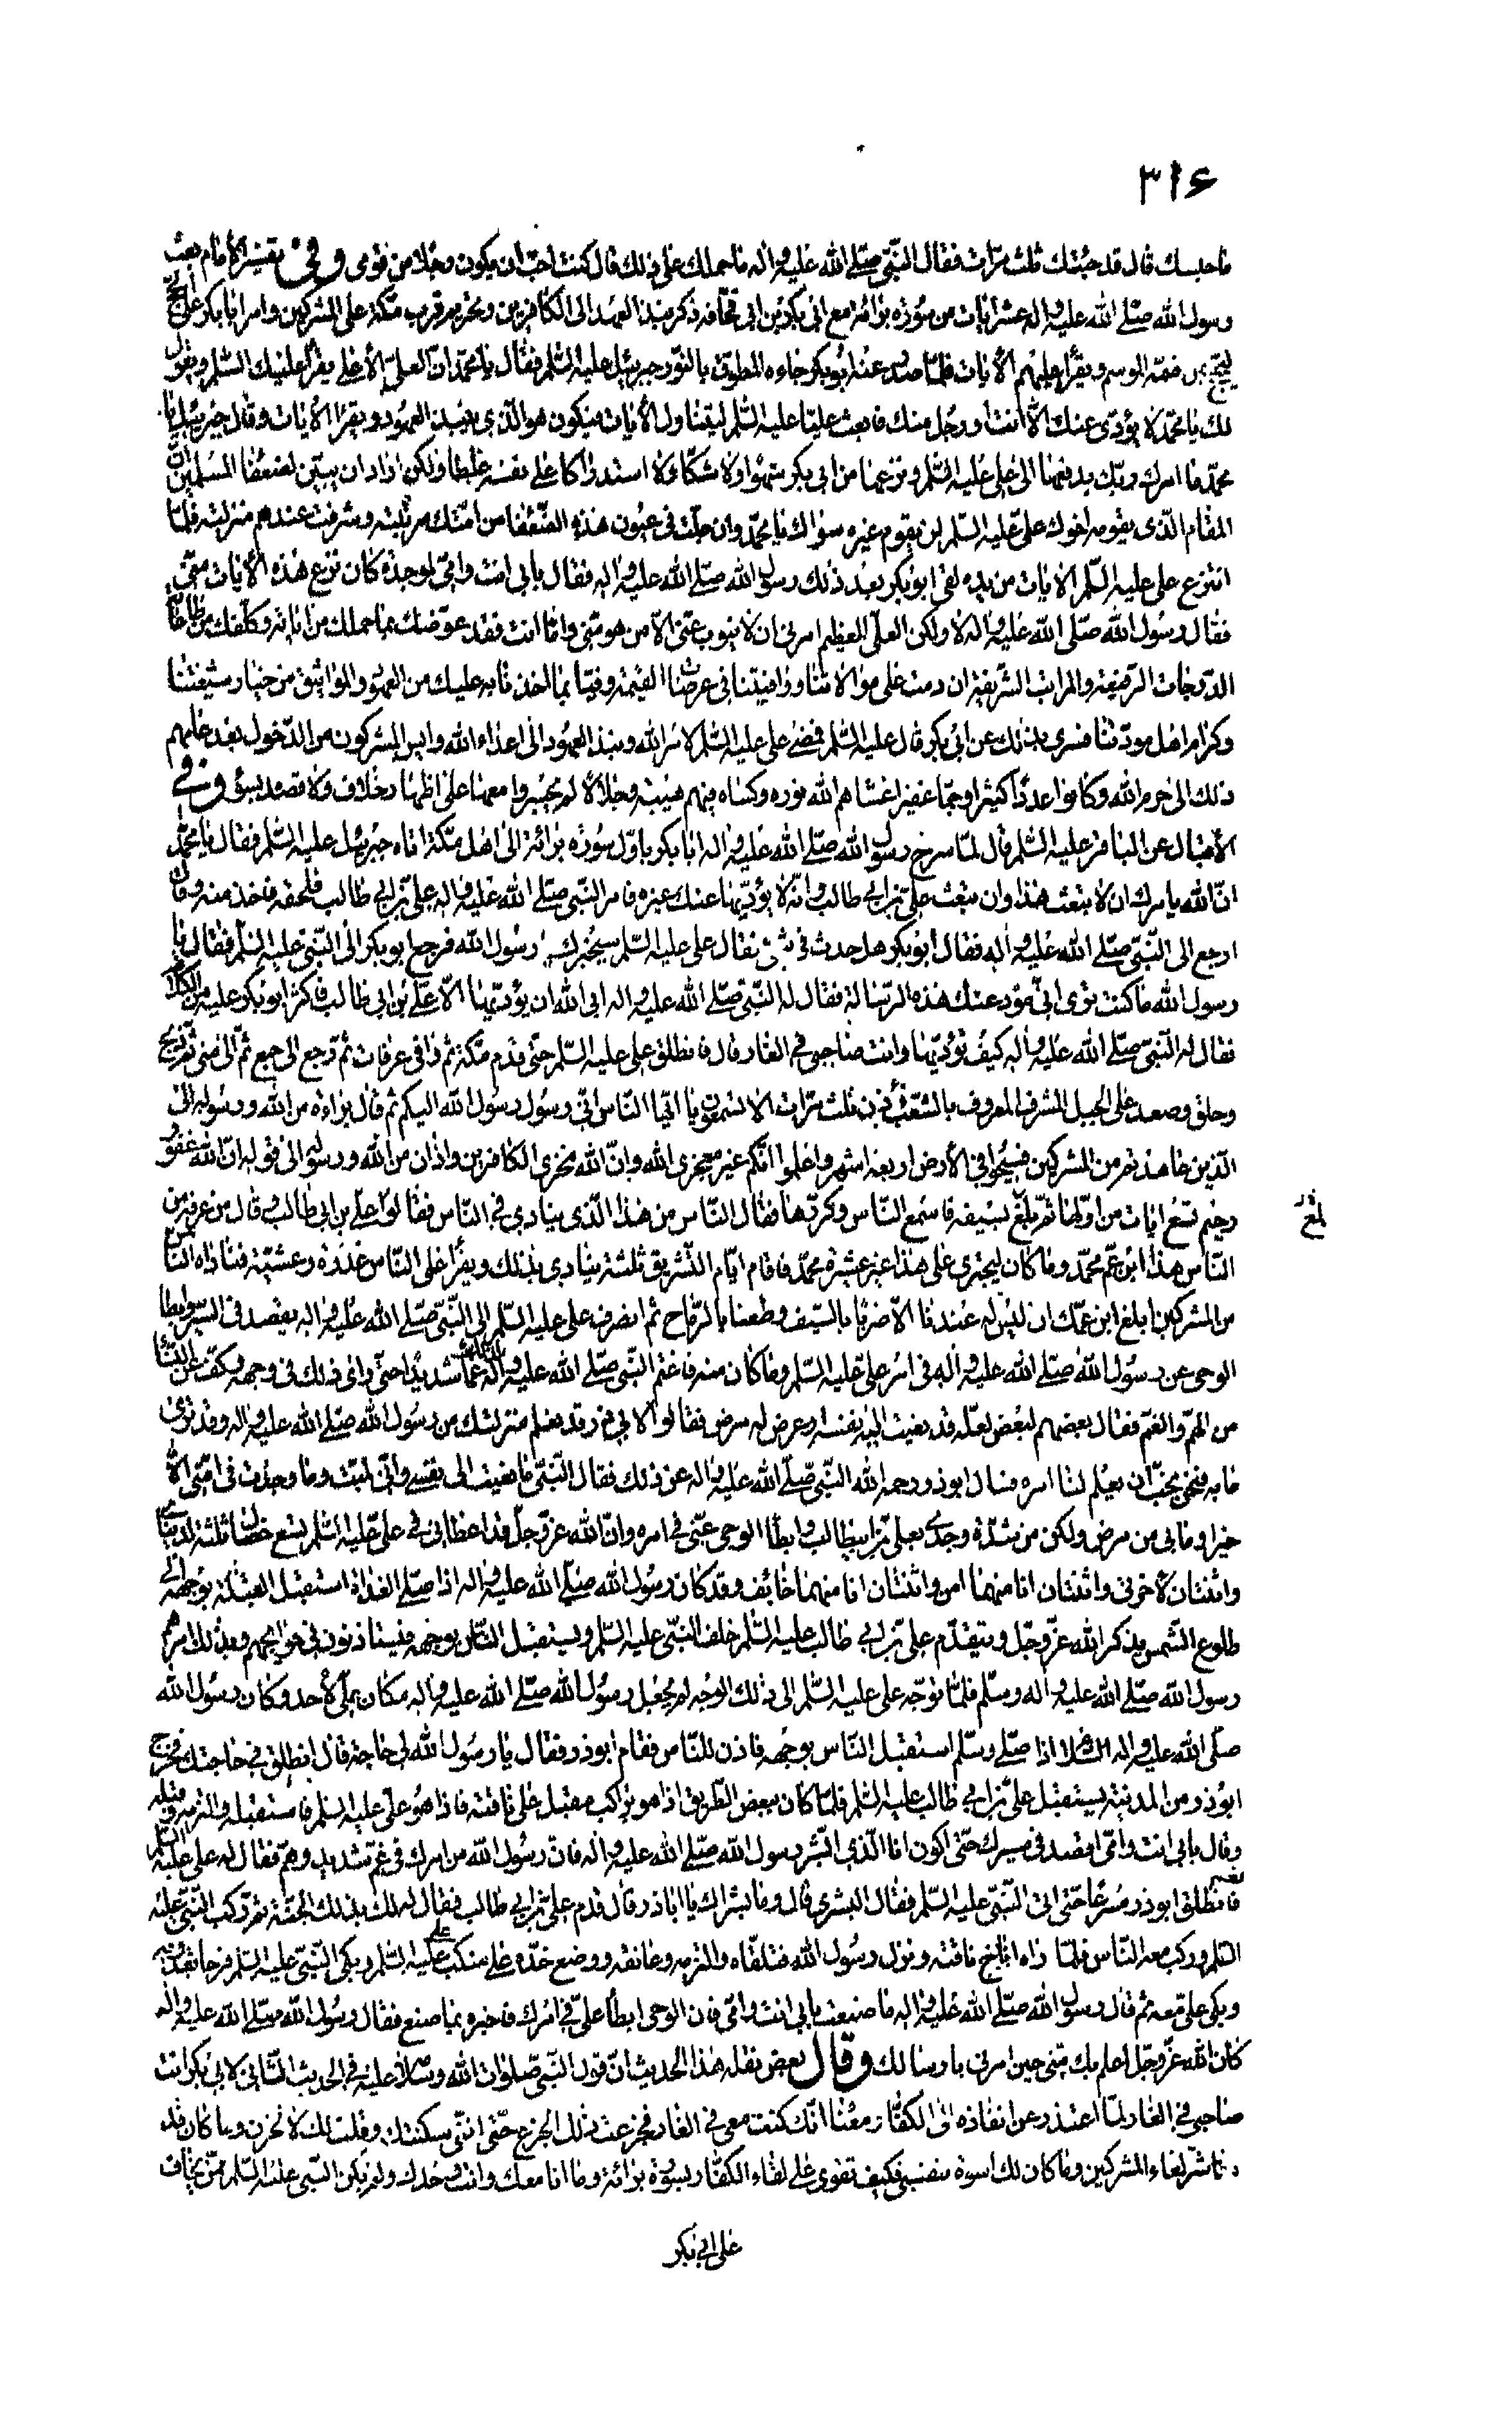 ٣١٤
ما حبسك قال قد جئتك ثلث مرّات فقال النّبيّ صلّى الله عليه و اله ما حملك على ذلك قال كنت احبّ ان يكون رجلا من قومى و في تفسير الأمام بعث
رسول الله صلّى الله عليه و اله عشر ايات من سورة برائة مع ابي بكر بن ابي قحافة و ذكر نبذ العهد الى الكافرين و تحريم قرب مكّة على المشركين و امر ابا بكر على الحجّ
ليحجّ بمن ضمّه الموسم و يقرأ عليهم الأيات فلمّا صدر عنه ابو بكر جاءه المطوّق بالنّور جبرئيل عليه السّلم فقال يا محمّد انّ العلىّ الأعلى يقرأ عليك السّلم و يقول
لك يا محمّد لا يؤدّى عنك الّا انت او رجل منك فابعث عليّا عليه السّلم ليتناول الأيات فيكون هو الّذى ينبذ العهود و يقرأ الأيات و قال جبرئيل يا
محمّد ما امرك ربّك بدفعها الى على عليه السّلم و نزعها من ابى بكر سهوا و لا شكّا و لا استدراكا على نفسه غلطا و لكن اراد ان يبيّن لضعفاء المسلمين انّ
المقام الّذى يقومه اخوك علىّ عليه السّلم لن يقومه غيره سواك يا محمّد و ان جلّت فى عيون هذه الضّعفا من امّتك مرتبته و شرفت عندهم منزلته فلمّا
انتزع على عليه السّلم الايات من يده لقى ابو بكر بعد ذلك رسول الله صلّى الله عليه و اله فقال بابى انت و امّى لموجدة كان نزع هذه الأيات منّى
فقال رسول الله صلّى الله عليه و اله لا و لكن العلىّ العظيم امرنى ان لا ينوب عنّى الّا من هو منّى و امّا انت فقد عوّضك بما حملك من اياته و كلّفك من طاعاته
الدّرجات الرّفيعة و المراتب الشّريفة ان دمت على موالاتنا و وافيتنا فى عرصات القيمة وفيّا بما اخذنا به عليك من العهود و المواثيق من خيار شيعتنا
و كرام اهل مودّتنا فسرى بذلك عن ابى بكر قال عليه السّلم فمضى على عليه السّلم لامر الله و نبذ العهود الى اعداء الله و ايس المشركون من الدّخول بعد عامهم
ذلك الى حرم الله و كانوا عددا كثيرا و جمّا غفيرا غشاهم الله نوره و كساه فيهم هيبة و جلالا لم يجسروا معها على اظهار خلاف و لا قصد بسوء و في
الأقبال عن الباقر عليه السّلم قال لمّا سرح رسول الله صلّى الله عليه و اله ابا بكر باوّل سورة برائة الى اهل مكّة اتاه جبرئيل عليه السّلم فقال يا محمّد
انّ الله يامرك ان لا تبعث هذا و ان تبعث علىّ بن ابى طالب و انّه لا يؤدّيها عنك غيره فامر النّبىّ صلّى الله عليه و اله علىّ بن ابى طالب فلحقه فاخذ منه و قال
ارجع الى النّبىّ صلّى الله عليه و اله فقال ابو بكر هل حدث فىّ شئ فقال على عليه السّلم سيخبرك رسول الله فرجع ابو بكر الى النّبىّ عليه السّلم فقال يا
رسول الله ما كنت ترى انّى مؤد عنك هذه الرّسالة فقال له النّبىّ صلّى الله عليه و اله ابى الله ان يؤدّيها الّا علىّ بن ابى طالب فاكثر ابو بكر عليه من الكلام
فقال له النّبىّ صلّى الله عليه و اله كيف تؤدّيها و انت صاحبى فى الغار قال فانطلق على عليه السّلم حتّى قدم مكّة ثم وافى عرفات ثم رجع الى جمع ثمّ الى منى ثمّ ذبح
و حلق و صعد على الجبل المشرف المعروف بالشّعب فاذّن ثلث مرّات الا تسمعون يا ايّها النّاس انّى رسول رسول الله اليكم ثم قال براءة من الله و رسوله الى
الّذين عاهدتم من المشركين فسيحوا فى الأرض اربعة اشهر و اعلموا انّكم غير معجزى الله و انّ الله مخزى الكافرين و اذان من الله و رسوله الى قوله انّ الله غفور
رحيم تسع ايات من اوّلها ثم بسيفه فاسمع النّاس و كرّرها فقال النّاس من هذا الّذى ينادى فى النّاس فقالوا علىّ بن ابى طالب و قال من عرفه من
النّاس هذا ابن عمّ محمّد و ما كان ليجترى على هذا غير عشيرة محمّد فاقام ايّام التّشريق ثلثة ينادى بذلك و يقرأ على النّاس غدوة و عشيّة فناداه النّاس
من المشركين ابلغ ابن عمّك ان ليس له عندنا الّا ضربا بالسّيف و طعنا بالرّماح ثم انصرف على عليه السّلم الى النّبىّ صلّى الله عليه و اله يقصد فى السّير و ابطا
الوحى عن رسول الله صلّى الله عليه و اله فى امر علىّ عليه السّلم و ما كان منه فاغتمّ النّبى صلّى الله عليه و اله لذلك غمّا شديدا حتّى رائى ذلك فى وجهه و كفّ عن النّساء
من الهمّ و الغمّ فقال بعضهم لبعض لعلّه قد نعيت اليه نفسه او عرض له مرض فقالوا لابى ذر قد نعلم منزلتك من رسول الله صلّى الله عليه و اله و قد ترى
ما به فنحن نحبّ ان يعلم لنا امره فسال ابو ذر رحمه الله النّبى صلّى الله عليه و اله عن ذلك فقال النّبىّ ما نعيت الى نفسى و انّى لميّت و ما وجدت فى امّتى الّا
خيرا و ما بى من مرض و لكن من شدّة وجدى بعلىّ بن ابيطالب و ابطأ الوحى عنّى فى امره و انّ الله عزّ و جلّ قد اعطانى فى علىّ عليه السّلم تسع خصال ثلثة لدنياى
و اثنتان لأخرتى و اثنتان انا منهما امن و اثنتان انا منهما خائف و قد كان رسول الله صلّى الله عليه و اله اذا صلّى الغداة استقبل القبلة بوجهه الى
طلوع الشّمس يذكر الله عزّ و جلّ و يتقدّم علىّ بن ابى طالب عليه السّلم خلف النّبى عليه السّلم و يستقبل النّاس بوجهه فيستاذنون فى حوائجهم و بذلك امرهم
رسول الله صلّى الله عليه و اله و سلّم فلمّا توجّه على عليه السّلم الى ذلك الوجه لم يجعل رسول الله صلّى الله عليه و اله مكان علىّ لأحد و كان رسول الله
صلّى الله عليه و اله اذا صلّى و سلّم استقبل النّاس بوجهه فاذن للنّاس فقام ابو ذر فقال يا رسول الله لى حاجة قال انطلق فى حاجتك فخرج
ابو ذر من المدينة يستقبل علىّ بن ابى طالب عليه السّلم فلمّا كان ببعض الطّريق اذا هو براكب مقبل على ناقته فاذا هو علىّ عليه السّلم فاستقبله و التزمه و قبّله
و قال بابى انت و امّى اقصد فى مسيرك حتّى اكون انا الّذى ابشّر رسول الله صلّى الله عليه و اله فانّ رسول الله من امرك فى غمّ شديد و همّ فقال له على عليه السّلم نعم
فانطلق ابو ذر مسرعا حتّى اتى النّبىّ عليه السّلم فقال البشرى قال و ما بشراك يا اباذر قال قدم علىّ بن ابى طالب فقال له لك بذلك الجنّة ثم ركب النّبىّ عليه
السّلم و ركب معه النّاس فلمّا راه اناخ ناقته و نزل رسول الله فتلقّاه و التزمه و عانقه و وضع خدّه على منكب علىّ عليه السّلم و بكى النّبىّ عليه السّلم فرحا بقدومه
و بكى علىّ معه ثم قال رسول الله صلّى الله عليه و اله ما صنعت بابى انت و امّى فان الوحى ابطأ علىّ فى امرك فاخبره بما صنع فقال رسول الله صلّى الله عليه و اله
كان الله عزّ و جلّ اعلم بك منّى حين امرنى بارسالك و قال بعض نقله هذا الحديث انّ قول النّبىّ صلوات الله و سلامه عليه فى الحديث الثّانى لابى بكر انت
صاحبى فى الغار لمّا اعتذر عن انفاذه الى الكفّار معناه انّك كنت معى فى الغار فجزعت ذلك الجزع حتّى انّنى سكنتك و قلت لك لا تحزن و ما كان قد
دنا شرّ لقاء المشركين و ما كان لك اسوة بنفسى فكيف تقوى على لقاء الكفّار بسورة برائة و ما انا معك و انت وحدك و لم يكن النّبى عليه السّلم ممّن يخاف
على ابى بكر